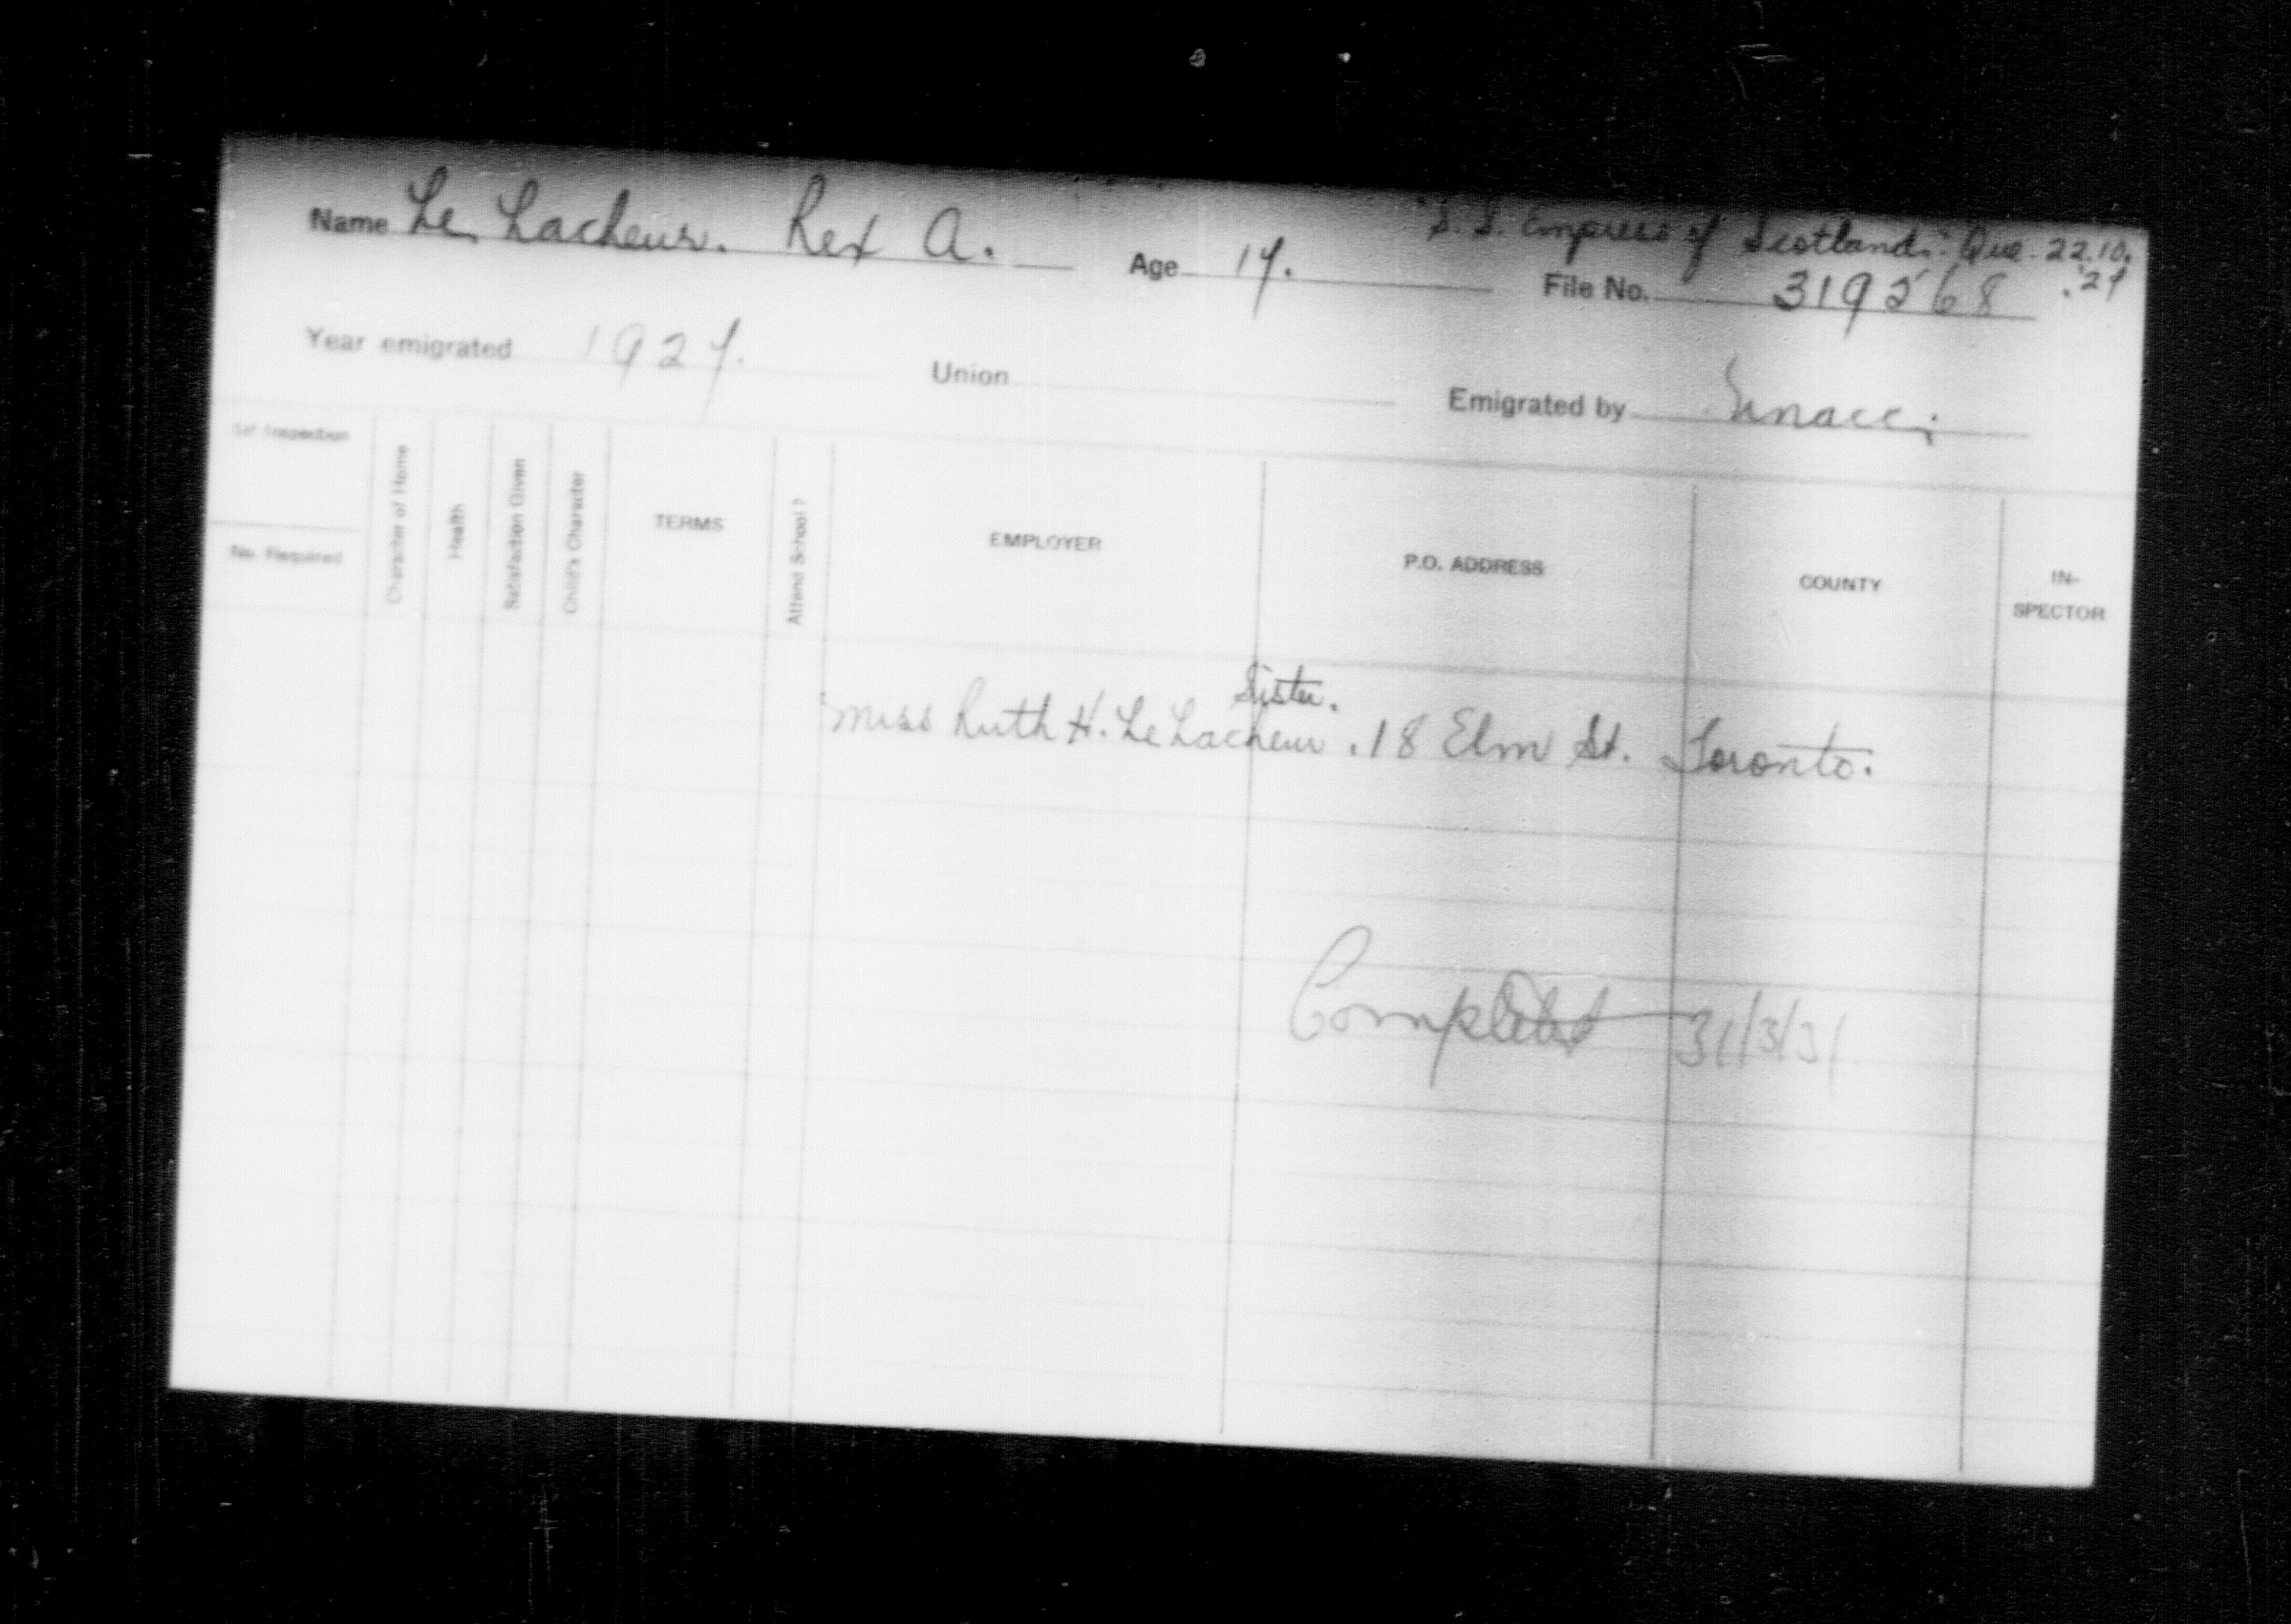 "S.S. Empress of Scotland". Que. 22.10.
Name Le Lacheur. Rex A. Age 17. File No. 319568 .'27
Year emigrated 1927. Union Emigrated by
1st Inspection
No. Required
Character of Home
Health
Satisfaction Given
Child's Character
TERMS
Attend School?
EMPLOYER
P.O. ADDRESS
COUNTY
IN-
SPECTOR
Sister.
Miss Ruth H. Le Lacheur. 18 Elm St. Toronto.
Completed 31/3/31